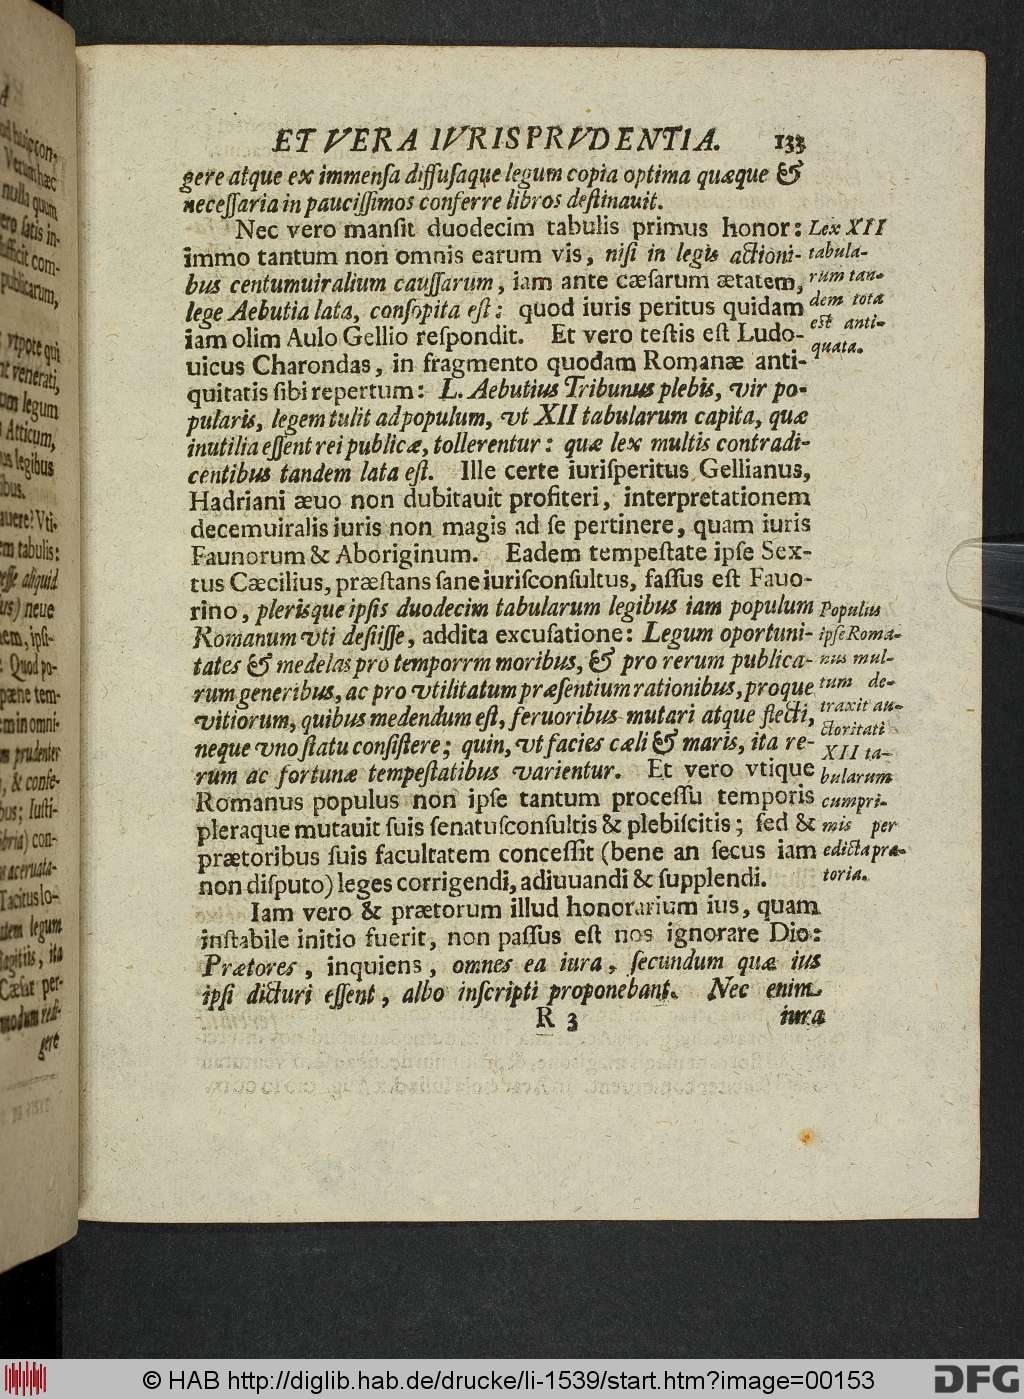 ET VERA IVRISPRVDENTIA. 133
gere atque ex immenſa diffuſaque legum copia optima quæque &
neceſſaria in pauciſſimos conferre libros deſtinauit.
Nec vero manſit duodecim tabulis primus honor:
immo tantum non omnis earum vis, niſi in legis actioni-
bus centumuiralium cauſſarum, iam ante cæſarum ætatem,
lege Aebutia lata, conſopita eſt: quod iuris peritus quidam
iam olim Aulo Gellio reſpondit. Et vero teſtis eſt Ludo-
uicus Charondas, in fragmento quodam Romanæ anti-
quitatis ſibi repertum: L. Aebutius Tribunus plebis, vir po-
pularis, legem tulit ad populum, vt XII tabularum capita, quæ
inutilia eſſent rei publicæ, tollerentur: quæ lex multis contradi-
centibus tandem lata eſt. Ille certe iuriſperitus Gellianus,
Hadriani æuo non dubitauit profiteri, interpretationem
decemuiralis iuris non magis ad ſe pertinere, quam iuris
Faunorum & Aboriginum. Eadem tempeſtate ipſe Sex-
tus Cæcilius, præſtans ſane iuriſconſultus, faſſus eſt Fauo-
rino, plerisque ipſis duodecim tabularum legibus iam populum
Romanum vti deſiiſſe, addita excuſatione: Legum oportuni-
tates & medelas pro temporrm moribus, & pro rerum publica-
rum generibus, ac pro vtilitatum præſentium rationibus, proque
vitiorum, quibus medendum eſt, feruoribus mutari atque flecti,
neque vno ſtatu conſiſtere; quin, vt facies cæli & maris, ita re-
rum ac fortunæ tempeſtatibus varientur. Et vero vtique
Romanus populus non ipſe tantum proceſſu temporis
pleraque mutauit ſuis ſenatuſconſultis & plebiſcitis; ſed &
prætoribus ſuis facultatem conceſſit (bene an ſecus iam
non diſputo) leges corrigendi, adiuuandi & ſupplendi.
Iam vero & prætorum illud honorarium ius, quam
inſtabile initio fuerit, non paſſus eſt nos ignorare Dio:
Prætores, inquiens, omnes ea iura, ſecundum quæ ius
ipſi dicturi eſſent, albo inſcripti proponebant. Nec enim
R 3 iura
Lex XII
tabula-
rum tan-
dem tota
eſt anti-
quata.
Populus
ipſe Roma-
nus mul-
tum de-
traxit au-
ctoritati
XII ta-
bularum
cum pri-
mis per
edicta præ-
toria.
© HAB http://diglib.hab.de/drucke/li-1539/start.htm?image=00153
DFG